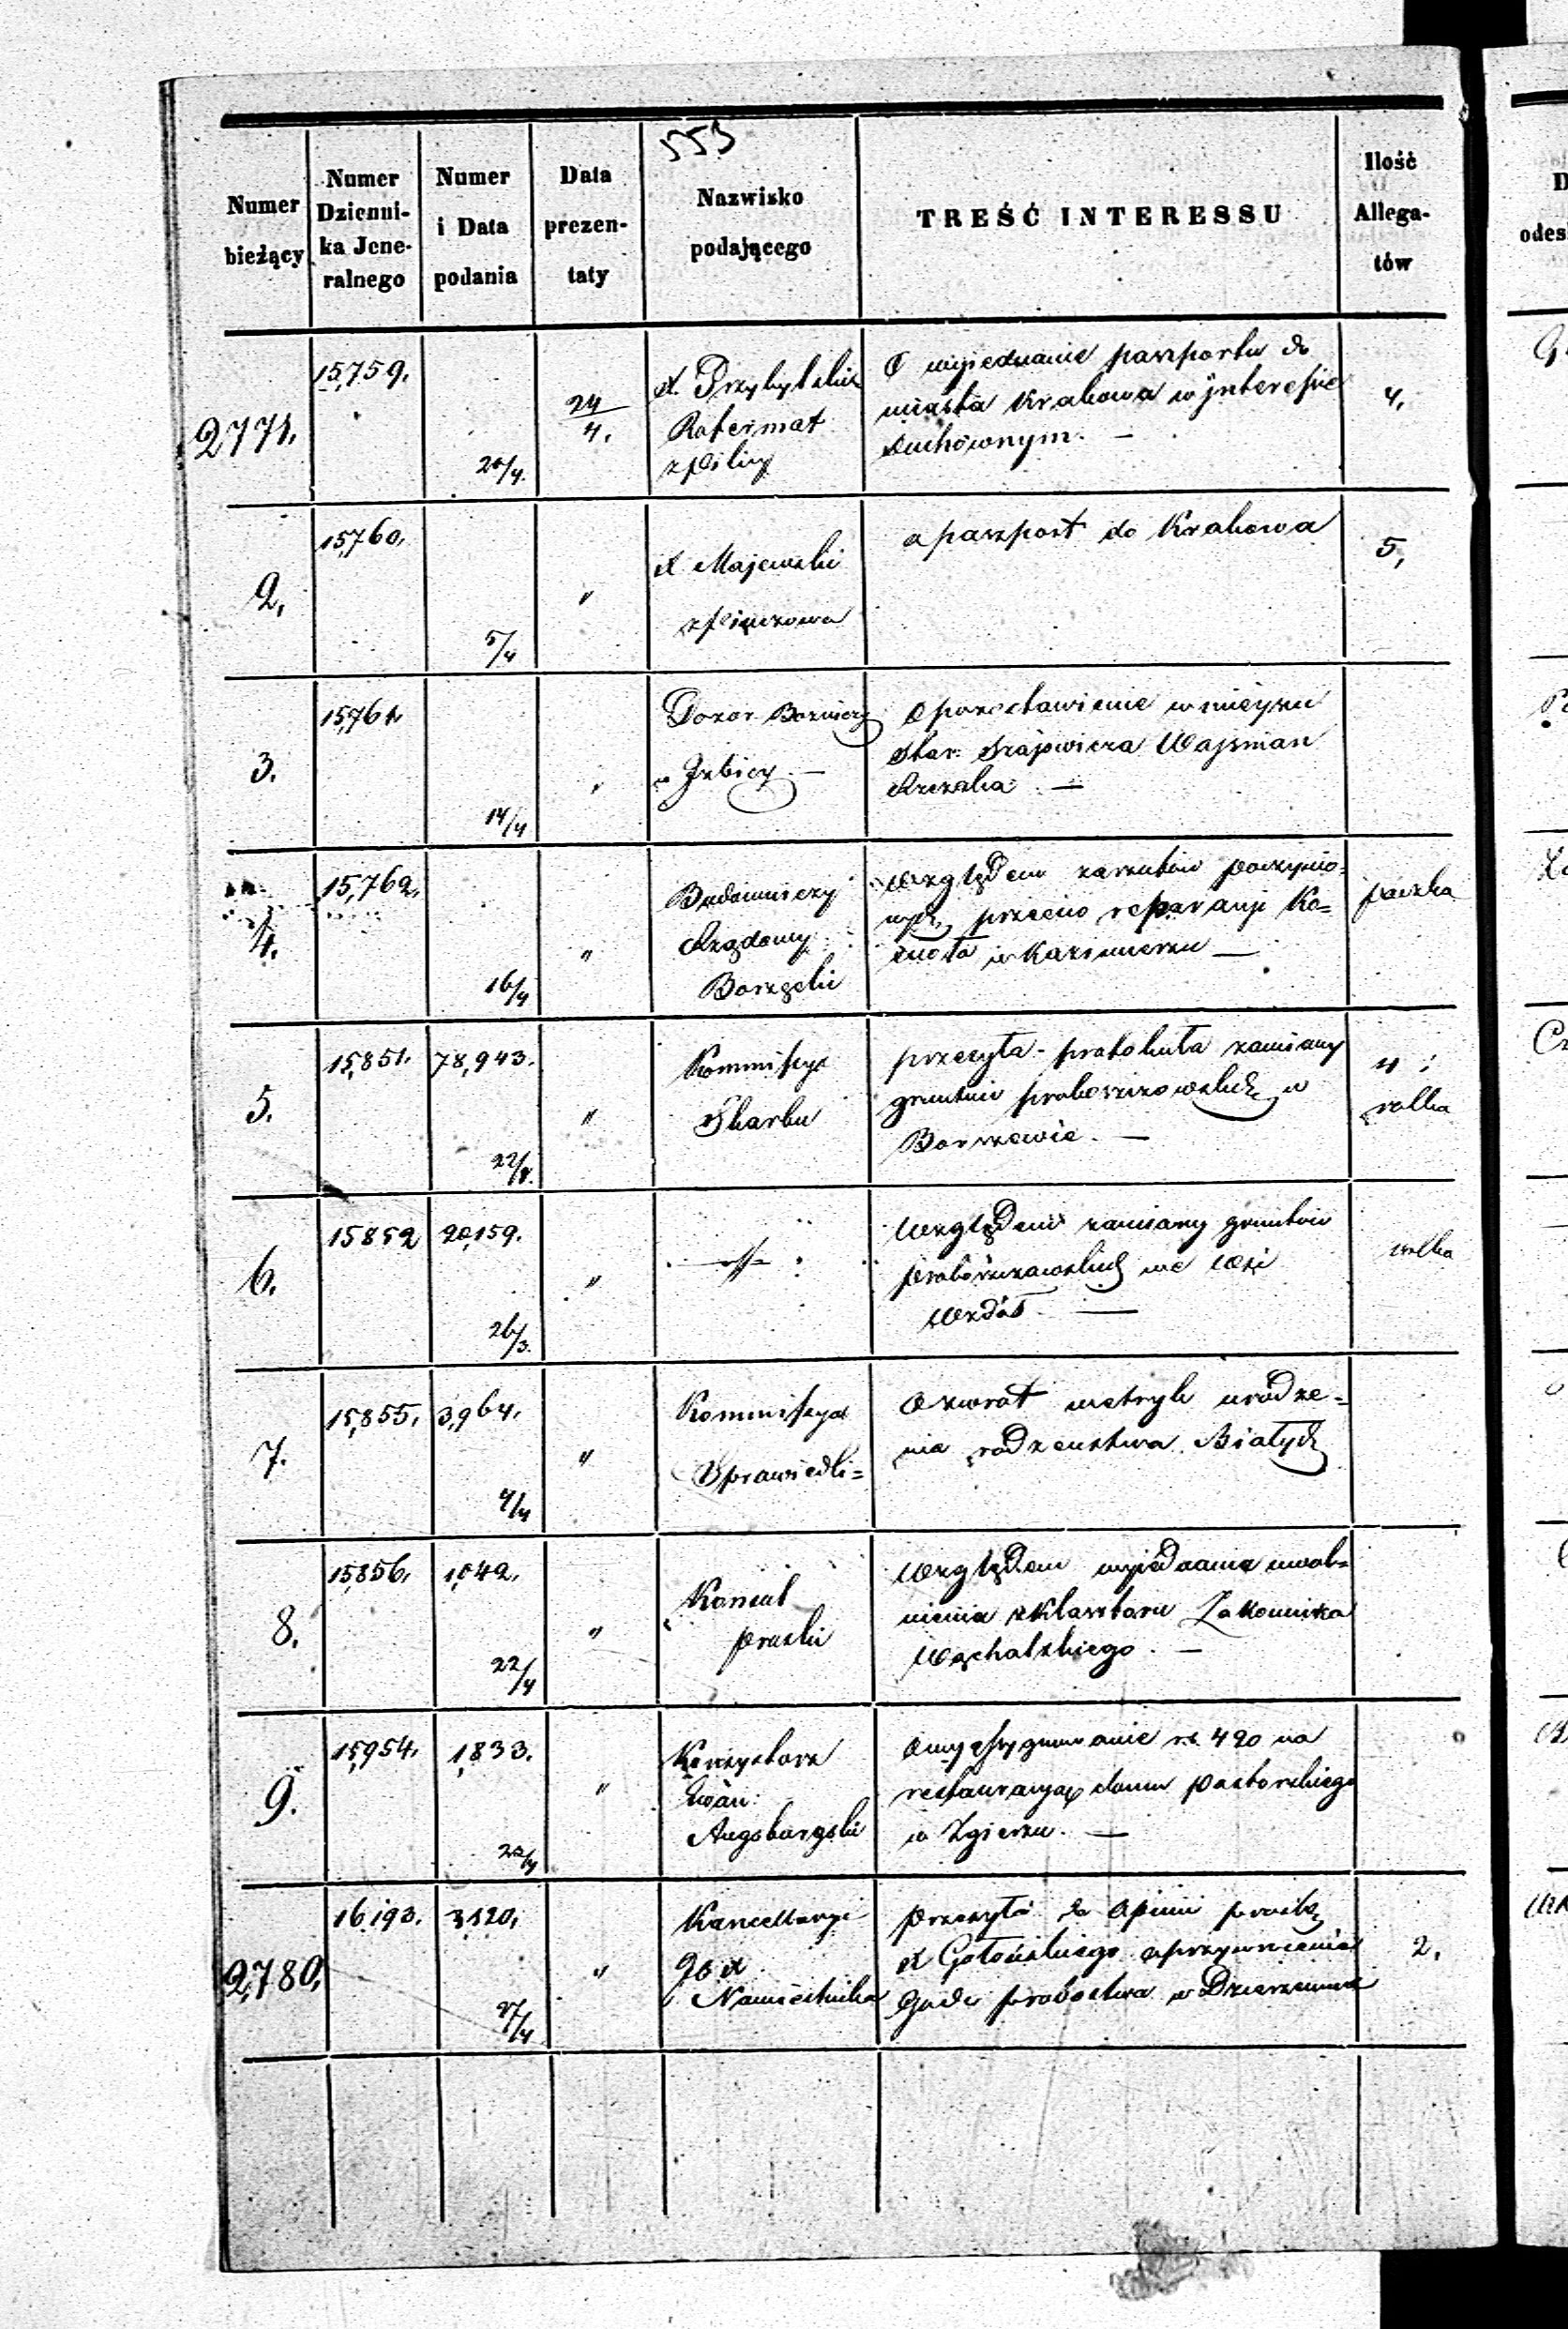 553
Numer bieżący
Numer Dzienni-ka Jene-ralnego
Numer i Data podania
Data prezen-taty
Nazwisko podającego
TREŚĆ INTERESSU
Ilość Allega-tów
2771.
15,759.
20/4.
24/4.
X. Przybylski
Reformat
z Pilicy
O wyjednanie paszportu do
miasta Krakowa w Interessie
duchownym. —
4,
2,
15,760,
5/4
"
X Majewski
z Pinczowa
o paszport do Krakowa
5,
3.
15,761,
14/4
"
Dozor Bozniczy
w Izbicy —
O pozostawienie w miejscu
Wajsman
—
4.
15,762,
16/4
"
Budowniczy
Rządowy
Względem zarzutów poczynio-
nych przeciw reparacji Ko=
ścioła w Kazimierzu —
paczka
5.
15,851.
78,943.
22/
"
Kommissya
Skarbu
przesyła protokuła zamiany
gruntów proboszczowskich w
—
rolka
6.
15852
20,159.
26/3.
"
Względem zamiany gruntów
proboszczowskich we wsi
Wzdół —
rolka
7.
15,855,
3,964,
4/4
"
Kommissya
Sprawiedli=
O zwrot metryk urodze=
nia rodzeństwa Białych
8.
15,856,
1,042,
22/4
"
Konsul
pruski
Względem wyjednania uwol=
nienia z Klasztoru Zakonnika
Wąchalskiego. —
9.
15,954.
1,833.
22/4
"
Konsystorz
Ewan:
Augsburgski
O wyassygnowanie rs. 420 na
restauracyą domu pastorskiego
w Zgierzu. —
2,780,
16,193.
3,120,
27/4
"
Kancellarya
JO X
Namiestnika
przesyła do opinii prośbę
X
probostwa w
2,